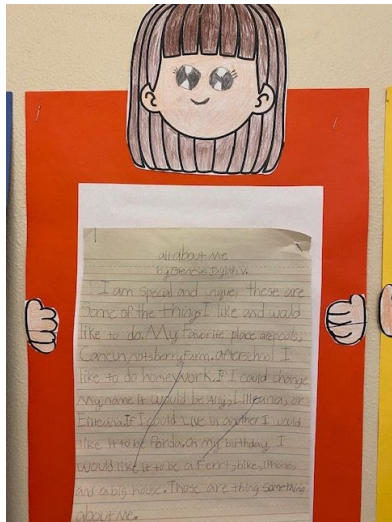 all about me
by Genesis Jaylah V.
I am special and unique, these are
Some of the things I like and would
like to do. My Favorite place are pools,
Cancun, notsberry Farm. afterschool I
like to do homework. If I could change
My name it would be Amy, Lilleana, or
Elileana. If I could live in another I would
like it to be florda. On my birthday I
would like it to be a Ferrit, bike, iPhone,
and a big house. Those are thing something
about me.